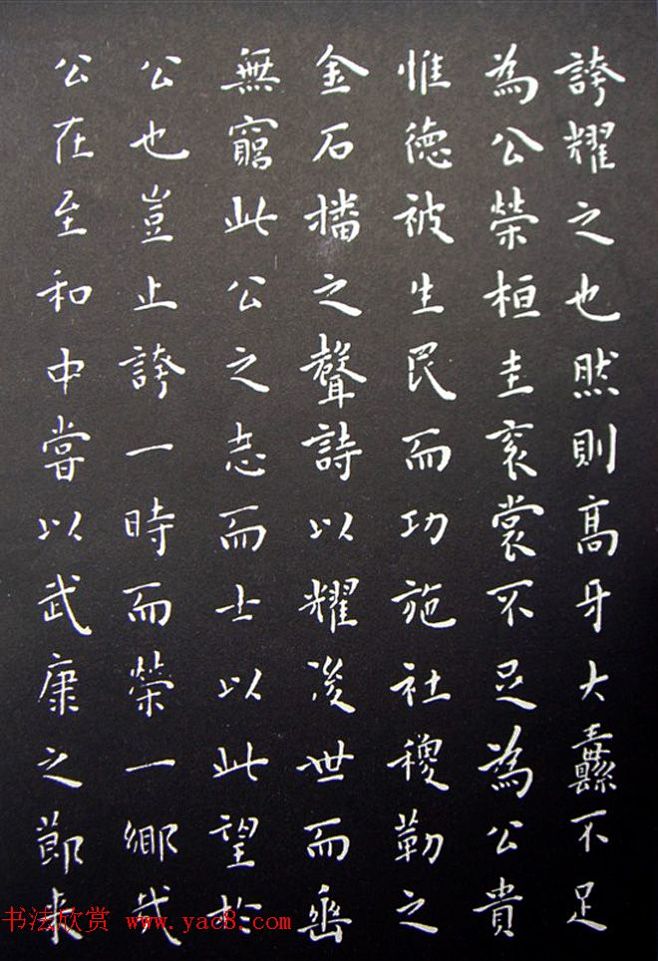 誇耀之也然則高牙大纛不足
為公榮桓圭衮裳不足為公貴
惟德被生民而功施社稷勒之
金石播之聲詩以耀後世而垂
無窮此公之志而士以此望於
公也豈止誇一時而榮一鄉哉
公在至和中嘗以武康之節来
书法欣赏 www.yac8.com